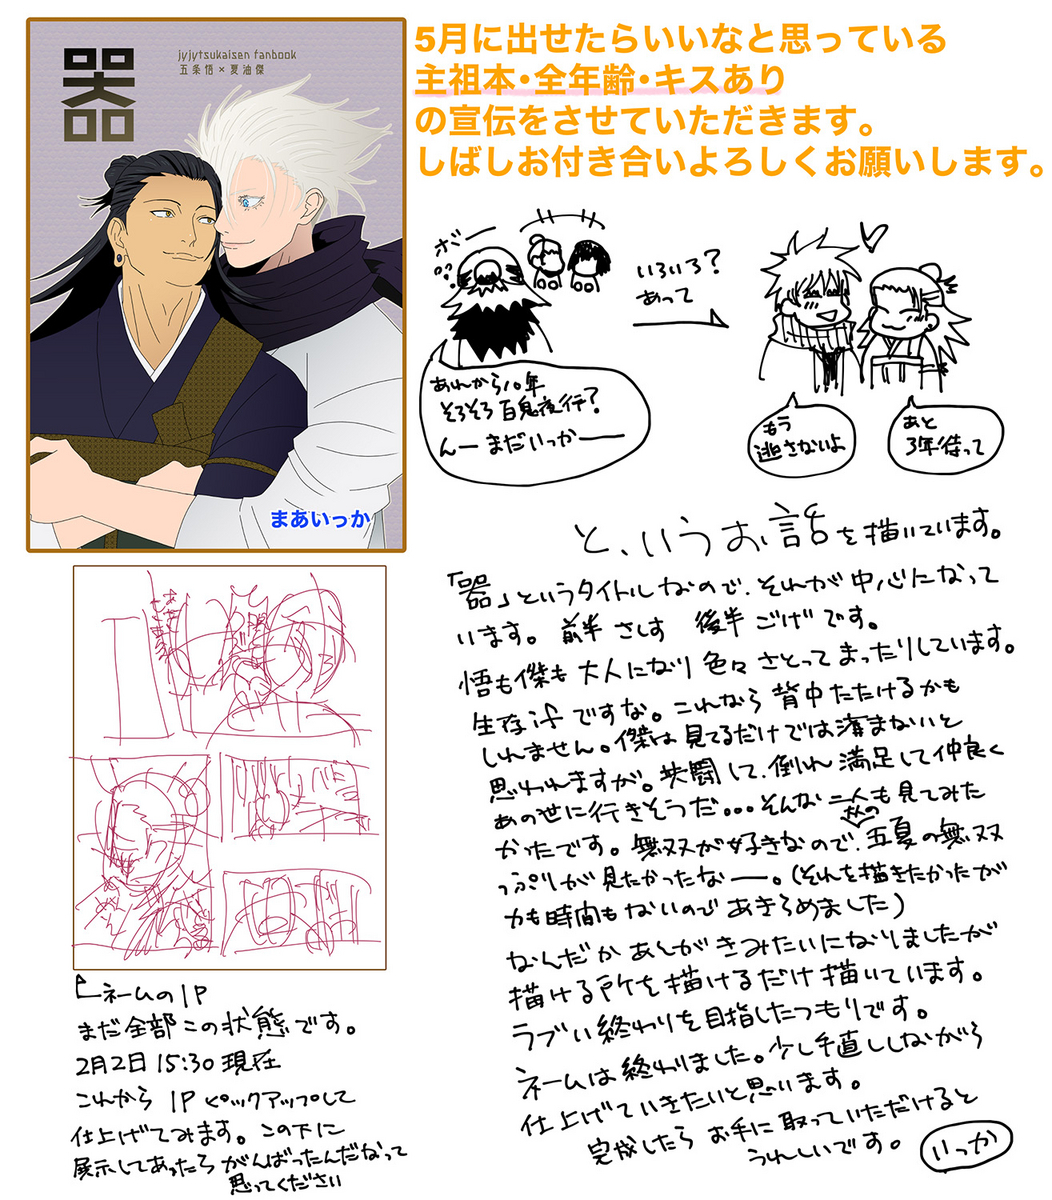 器
jyjytsukaisen fanbook
五条悟×夏油傑
まあいっか
5月に出せたらいいなと思っている
主祖本・全年齢・キスあり
の宣伝をさせていただきます。
しばしお付き合いよろしくお願いします。
ボー
あれから10年
そろそろ百鬼夜行?
んーまだいっかー
いろいろ?
あって
もう
逃さないよ
あと
3年待って
と、いうお話を描いています。
「器」というタイトルなので、それが中心になって
います。前半さしす 後半ごげです。
悟も傑も大人になり色々さとってまったりしています。
生存ifですな。これなら背中たたけるかも
しれません。傑は見てるだけでは済まないと
思われますが。共闘して、倒れ満足して仲良く
あの世に行きそうだ…そんな二人も見てみた
かったです。無双が好きなので、五夏の無双
っぷりが見たかったなー。(それを描きたかったが
力も時間もないのであきらめました)
なんだかあとがきみたいになりましたが
描ける所を描けるだけ描いています。
ラブい終わりを目指したつもりです。
ネームは終わりました。少し手直ししながら
仕上げていきたいと思います。
完成したらお手に取っていただけると
うれしいです。
いっか
ネームの1P
まだ全部この状態です。
2月2日15:30現在
これから1Pピックアップして
仕上げてみます。この下に
展示してあったらがんばったんだなって
思ってください